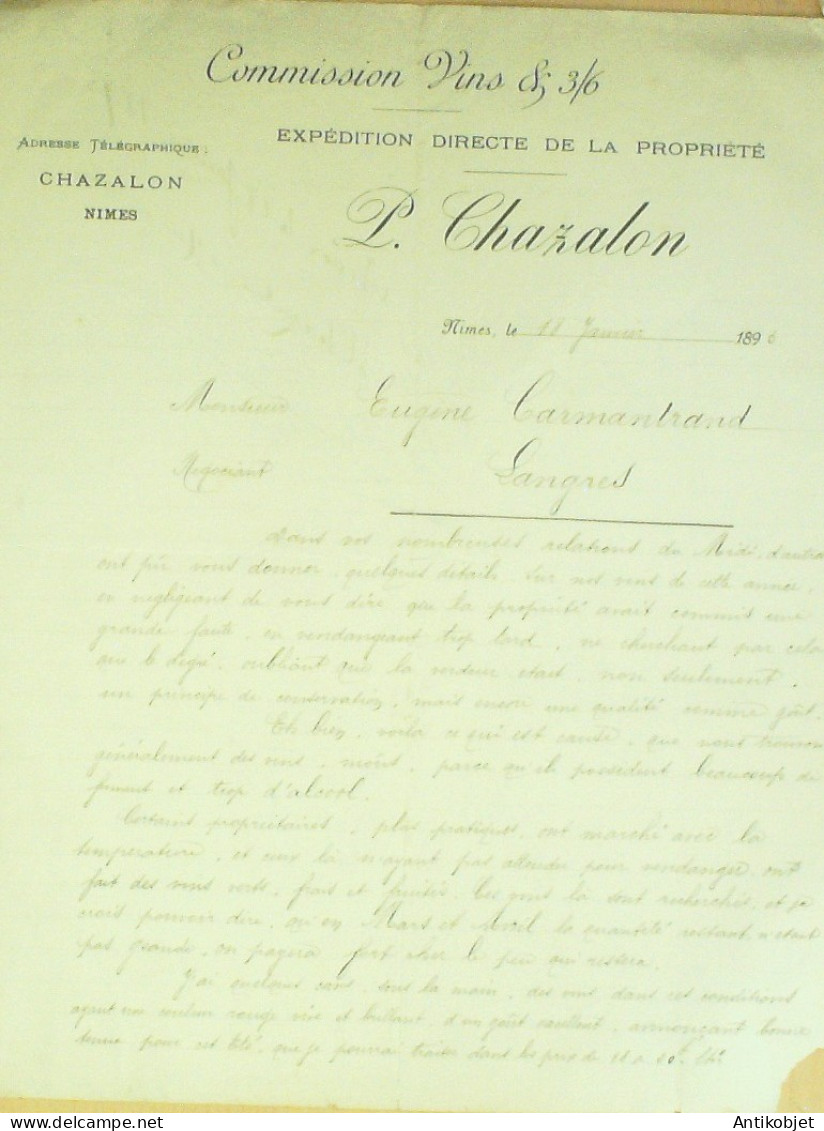 Commission Vins & 3/6
EXPÉDITION DIRECTE DE LA PROPRIÉTÉ
ADRESSE TÉLÉGRAPHIQUE :
CHAZALON
NIMES
P. Chazalon
Nimes, le 18 Janvier 1896
Monsieur Eugène Carmantrand
Négociant Langres
Dans vos nombreuses relations du Midi, d'autres
ont pu vous donner quelques détails sur nos vins de cette année,
en négligeant de vous dire que la propriété avait commis une
grande faute, en vendangeant trop tard, ne cherchant par cela
que le degré, oubliant que la verdeur était, non seulement
un principe de conservation, mais encore une qualité comme goût.
Eh bien, voilà ce qui est cause, que nous trouvons
généralement des vins, parce qu'ils possèdent beaucoup de
et trop d'alcool.
Certains propriétaires, plus pratiques, ont marché avec la
température, et ceux là n'ayant pas attendu pour vendanger, ont
fait des vins verts, frais et fruités. Ces vins là sont recherchés, et je
crois pouvoir dire, qu'en Mars et Avril la quantité restant n'étant
pas grande, on payera fort cher le peu qui restera.
J'ai quelques caves, sous la main, des vins dans ces conditions
ayant une couleur rouge vive et brillant, d'un goût excellent, annonçant bonne
tenue pour cet été, que je pourrai traiter dans les prix de